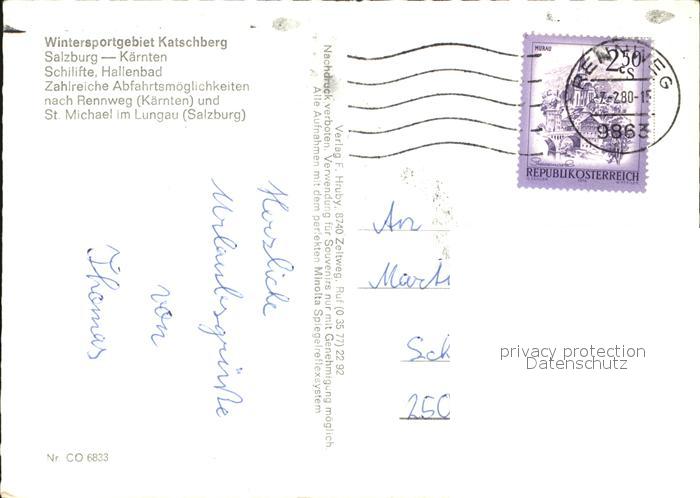 Wintersportgebiet Katschberg
Salzburg — Kärnten
Schilifte, Hallenbad
Zahlreiche Abfahrtsmöglichkeiten
nach Rennweg (Kärnten) und
St. Michael im Lungau (Salzburg)
Herzliche
Urlaubsgrüße
von
Thomas
Nr. CO 6833
Verlag F. Hruby, 8740 Zeltweg, Ruf (0 35 77) 22 92
Nachdruck verboten. Verwendung für Souvenirs nur mit Genehmigung möglich.
Alle Aufnahmen mit dem perfekten Minolta Spiegelreflexsystem
MURAU
2.50
S
REPUBLIK ÖSTERREICH
RENNWEG
-7.-2.80-15
9863
An
Marti
Sck
250
privacy protection
Datenschutz